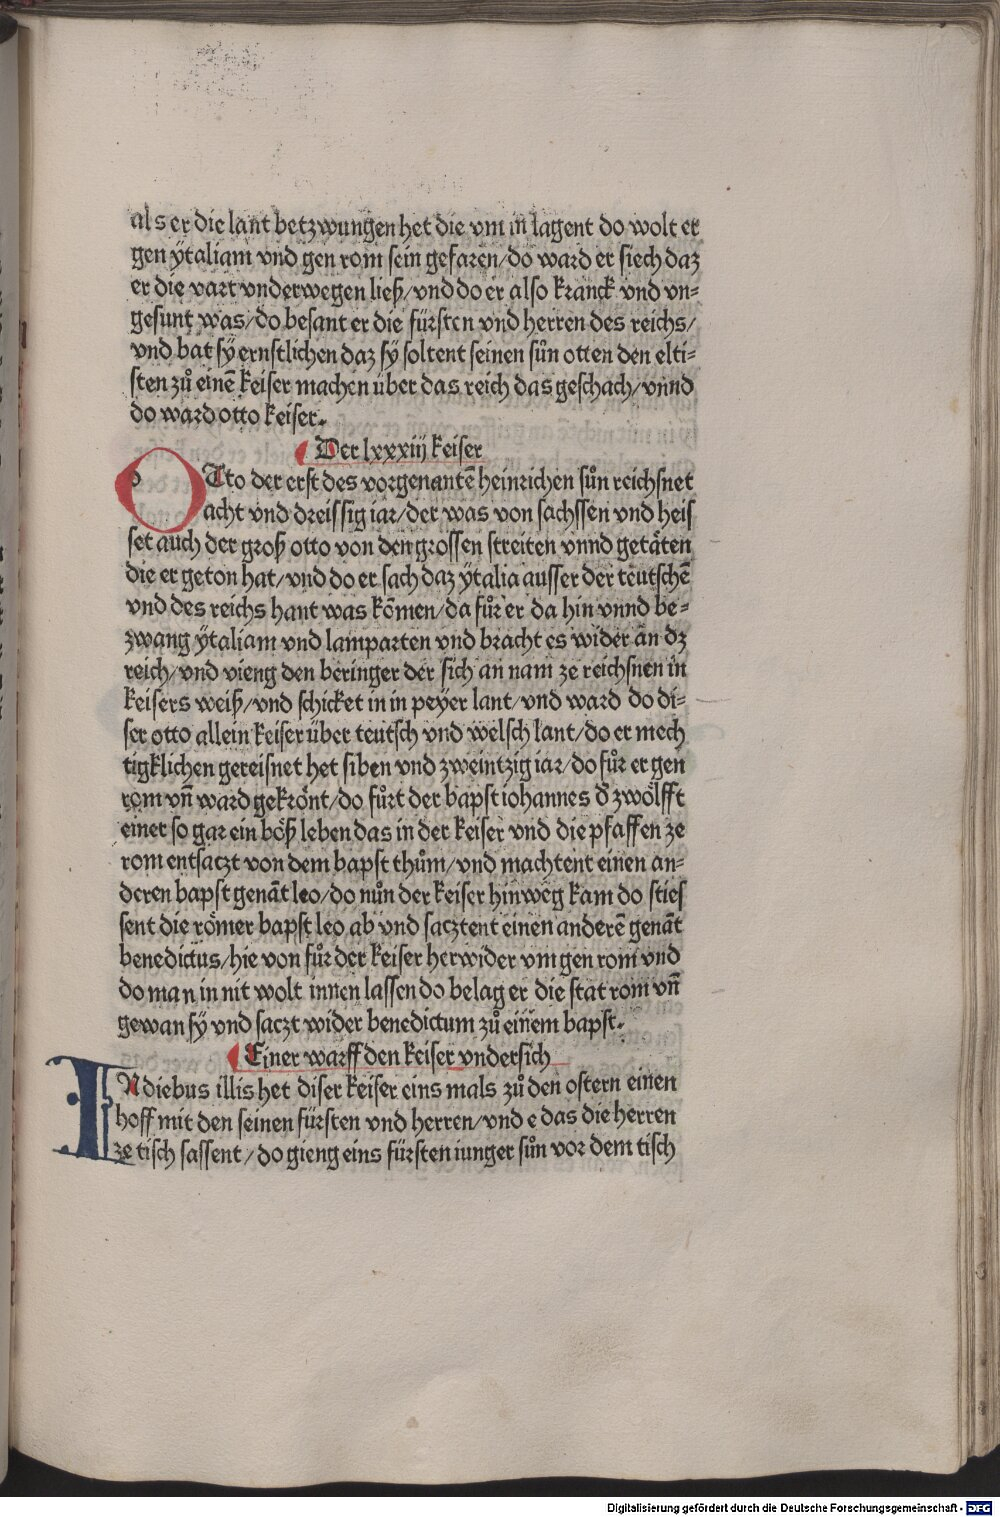 als er die lant betzwungen het die vm in lagent do wolt er
gen ytaliam vnd gen rom sein gefaren/do ward er siech daz
er die vart vnderwegen ließ/vnd do er also kranck vnd vn⸗
gesunt was/do besant er die fürsten vnd herren des reichs/
vnd bat sÿ ernstlichen daz sÿ soltent seinen sůn otten den elti⸗
sten zů einē keiser machen über das reich das geschach/vnnd
do ward otto keiser.
Der lxxxiij keiser
OTto der erst des vorgenantē heinrichen sůn reichsnet
acht vnd dreissig iar/der was von sachssen vnd heis
set auch der groß otto von den grossen streiten vnnd getäten
die er geton hat/vnd do er sach daz ytalia ausser der teütschē
vnd des reichs hant was kōmen/da fůr er da hin vnnd be⸗
zwang ÿtaliam vnd lamparten vnd bracht es wider an dz
reich/vnd vieng den beringer der sich an nam ze reichsnen in
keisers weiß/vnd schicket in in peyer lant/vnd ward do di⸗
ser otto allein keiser über teutsch vnd welsch lant/do er mech
tigklichen gereisnet het siben vnd zweintzig iar/do fůr er gen
rom vn̄ ward gekrönt/do fůrt der bapst iohannes d̄ zwölfft
einer so gar ein böß leben das in der keiser vnd die pfaffen ze
rom entsaczt von dem bapst thům/vnd machtent einen an⸗
deren bapst genāt leo/do nůn der keiser hinweg kam do sties
sent die römer bapst leo ab vnd sacztent einen anderē genāt
benedictus/hie von fůr der keiser herwider vm gen rom vnd
do man in nit wolt innen lassen do belag er die stat rom vn̄
gewan sÿ vnd saczt wider benedictum zů einem bapst.
Einer warff den keiser vndersich
INdiebus illis het diser keiser eins mals zů den ostern einen
hoff mit den seinen fürsten vnd herren/vnd e das die herren
ze tisch sassent/do gieng eins fürsten iunger sůn vor dem tisch
Digitalisierung gefördert durch die Deutsche Forschungsgemeinschaft - DFG